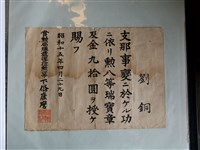 劉銅
支那事變ニ於ケル功
ニ依リ勲八等瑞寶章
及金九拾圓ヲ授ケ
賜フ
昭和十五年四月二十九日
賞勲局總裁從四位勲二等下條康麿